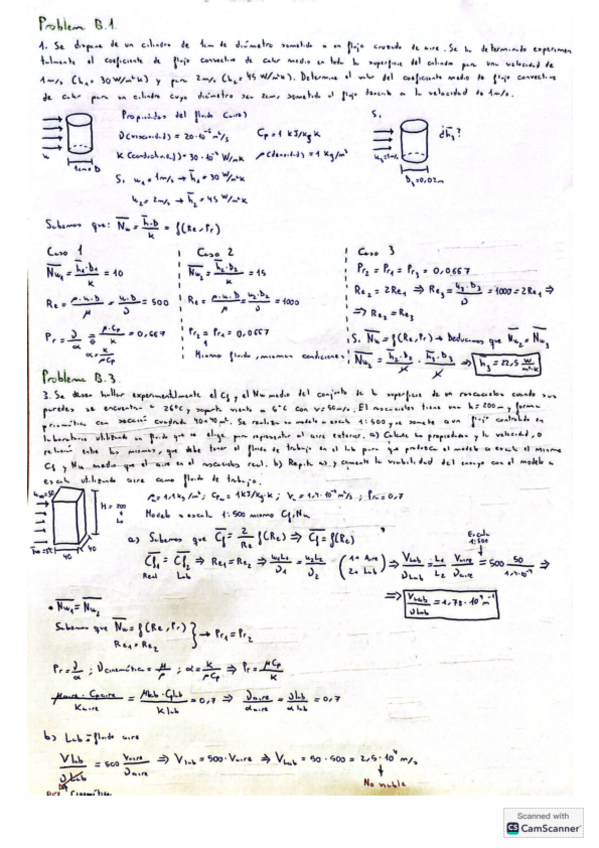 Problem B.1.
1. Se dispone de un cilindro de 1cm de diámetro sometido a un flujo cruzado de aire. Se ha determinado experimen
talmente el coeficiente de flujo convectivo de calor medio en toda la superficie del cilindro para una velocidad de
1m/s (h₁=30W/m²K) y para 2m/s (h₂=45W/m²K). Determine el valor del coeficiente medio de flujo convectivo
de calor para un cilindro cuyo diámetro sea 2cm, sometido al flujo a la velocidad de 1m/s.
Propiedades del fluido (aire)
ν(viscosidad) = 20·10⁻⁶ m²/s Cp = 1 kJ/kg K
K (conductividad) = 30·10⁻³ W/mK ρ(densidad) = 1 kg/m³
1cm = D
Si u₁ = 1m/s → h̄₁ = 30 W/m²K
u₂ = 2m/s → h̄₂ = 45 W/m²K
S.
¿h̄₃?
u₃=1m/s
D₃=0,02m
Sabemos que: N̄u = h̄·D/k = f(Re, Pr)
Caso 1
N̄u₁ = h̄₁·D₁/k = 10
Re = ρ·u·D/μ = u·D/ν = 500
Pr = ν/α = μ·Cp/k = 0,667
α = k/ρCp
Caso 2
N̄u₂ = h̄₂·D₂/k = 15
Re = ρ·u·D/μ = u₂·D₂/ν = 1000
Pr₂ = Pr₁ = 0,0667
Mismo fluido, mismas condiciones
Caso 3
Pr₂ = Pr₁ = Pr₃ = 0,0667
Re₂ = 2Re₁ ⇒ Re₃ = u₃·D₃/ν = 1000 = 2Re₁ ⇒
⇒ Re₂ = Re₃
Si N̄u = f(Re, Pr) → Deducimos que N̄u₂ = N̄u₃
⇒ h̄₃ = 22,5 W/m²K
Problema B.3.
3. Se desea hallar experimentalmente el Cf y el Nu medio del conjunto de la superficie de un rascacielos cuando sus
paredes se encuentran a 26°C y soporta viento a 6°C con v=50m/s. El rascacielos tiene una h=200m y forma
prismática con sección cuadrada 40×40m². Se realiza un modelo a escala 1:500 y se somete a un flujo controlado en
laboratorio utilizando un fluido que se elige para representar al aire exterior. a) Calcule las propiedades y la velocidad, o
relación entre los mismos, que debe tener el fluido de trabajo en el lab para que produzca el modelo a escala el mismo
Cf y Nu medio que el aire en el rascacielos real. b) Repita a), y comente la viabilidad del ensayo con el modelo a
escala utilizando aire como fluido de trabajo.
H = 200
40
40
ρ = 1,1 kg/m³; Cp = 1kJ/kg·K; ν = 1,4·10⁻⁵ m²/s; Pr = 0,7
Modelo a escala 1:500 mismo Cf, Nu
a) Sabemos que C̄f = 2/Re f(Re) ⇒ C̄f = f(Re)
C̄f₁ = C̄f₂ ⇒ Re₁ = Re₂ ⇒ u₁L₁/ν₁ = u₂L₂/ν₂ (1= Aire 2= Lab) ⇒ Vlab/νlab = L₁/L₂ Vaire/νaire = 500 50/1,4·10⁻⁵ ⇒
Real Lab
Escala
1:500
⇒ Vlab/νlab = 1,78·10⁹ m⁻¹
• N̄u₁ = N̄u₂
Sabemos que N̄u = f(Re, Pr)
Re₁ = Re₂
} → Pr₁ = Pr₂
Pr = ν/α ; ν cinemática = μ/ρ ; α = k/ρCp ⇒ Pr = μCp/K
μaire·Cpaire/Kaire = μlab·Cplab/Klab = 0,7 ⇒ νaire/αaire = νlab/αlab = 0,7
b) Lab = fluido aire
Vlab/νlab = 500 Vaire/νaire ⇒ Vlab = 500·Vaire ⇒ Vlab = 50·500 = 2,5·10⁴ m/s
No viable
Cinemática
Scanned with
CS CamScanner